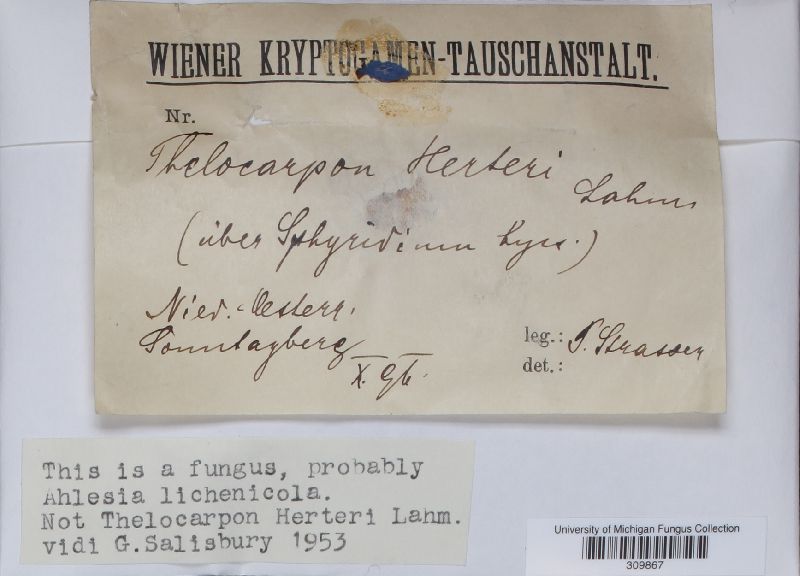 WIENER KRYPTOGAMEN-TAUSCHANSTALT.
Nr.
Thelocarpon Herteri Lahm
(über Sphyridium byss.)
Nied.-Oesterr.
Sonntagberg
X. 96.
leg.: P. Strasser
det.:
This is a fungus, probably
Ahlesia lichenicola.
Not Thelocarpon Herteri Lahm.
vidi G.Salisbury 1953
University of Michigan Fungus Collection
309867